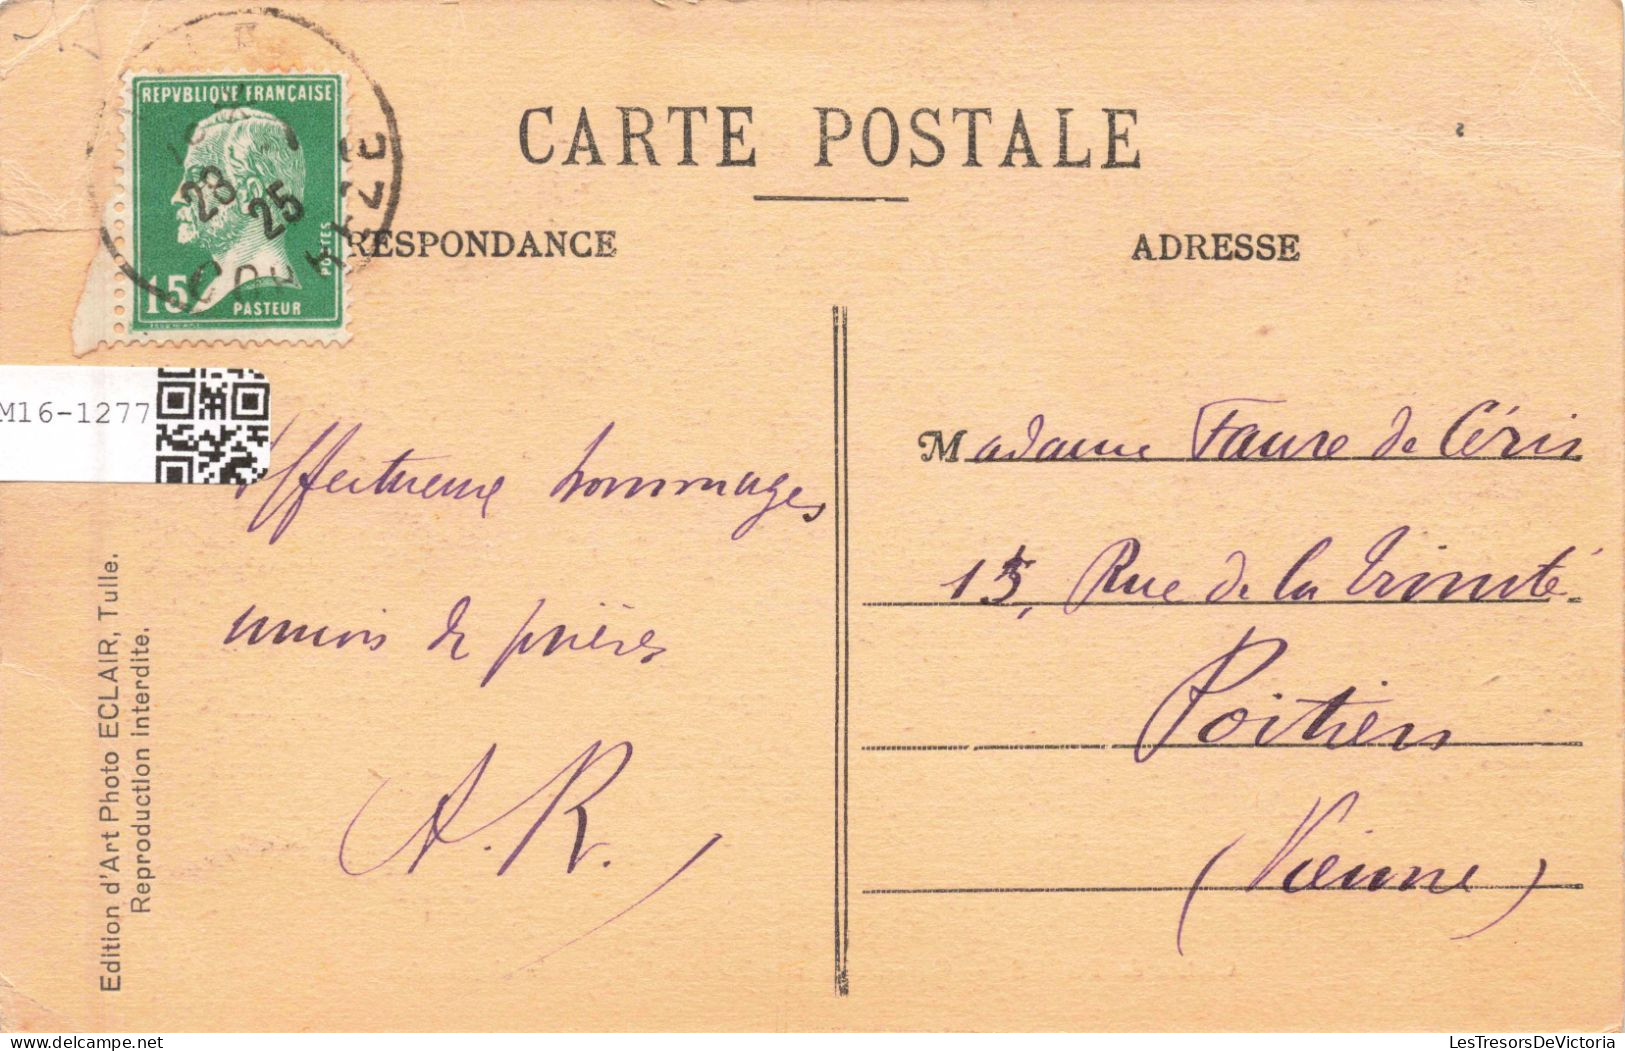 REPVBLIQVE FRANÇAISE
POSTES
15
PASTEUR
23
25
CORREZE
CARTE POSTALE
RESPONDANCE
ADRESSE
M16-1277
Affectueux hommages
union de prières
A. R.
Madame Faure de Céris
15, Rue de la Trinité
Poitiers
(Vienne)
Edition d'Art Photo ECLAIR, Tulle.
Reproduction interdite.
LesTresorsDeVictoria
www.delcampe.net